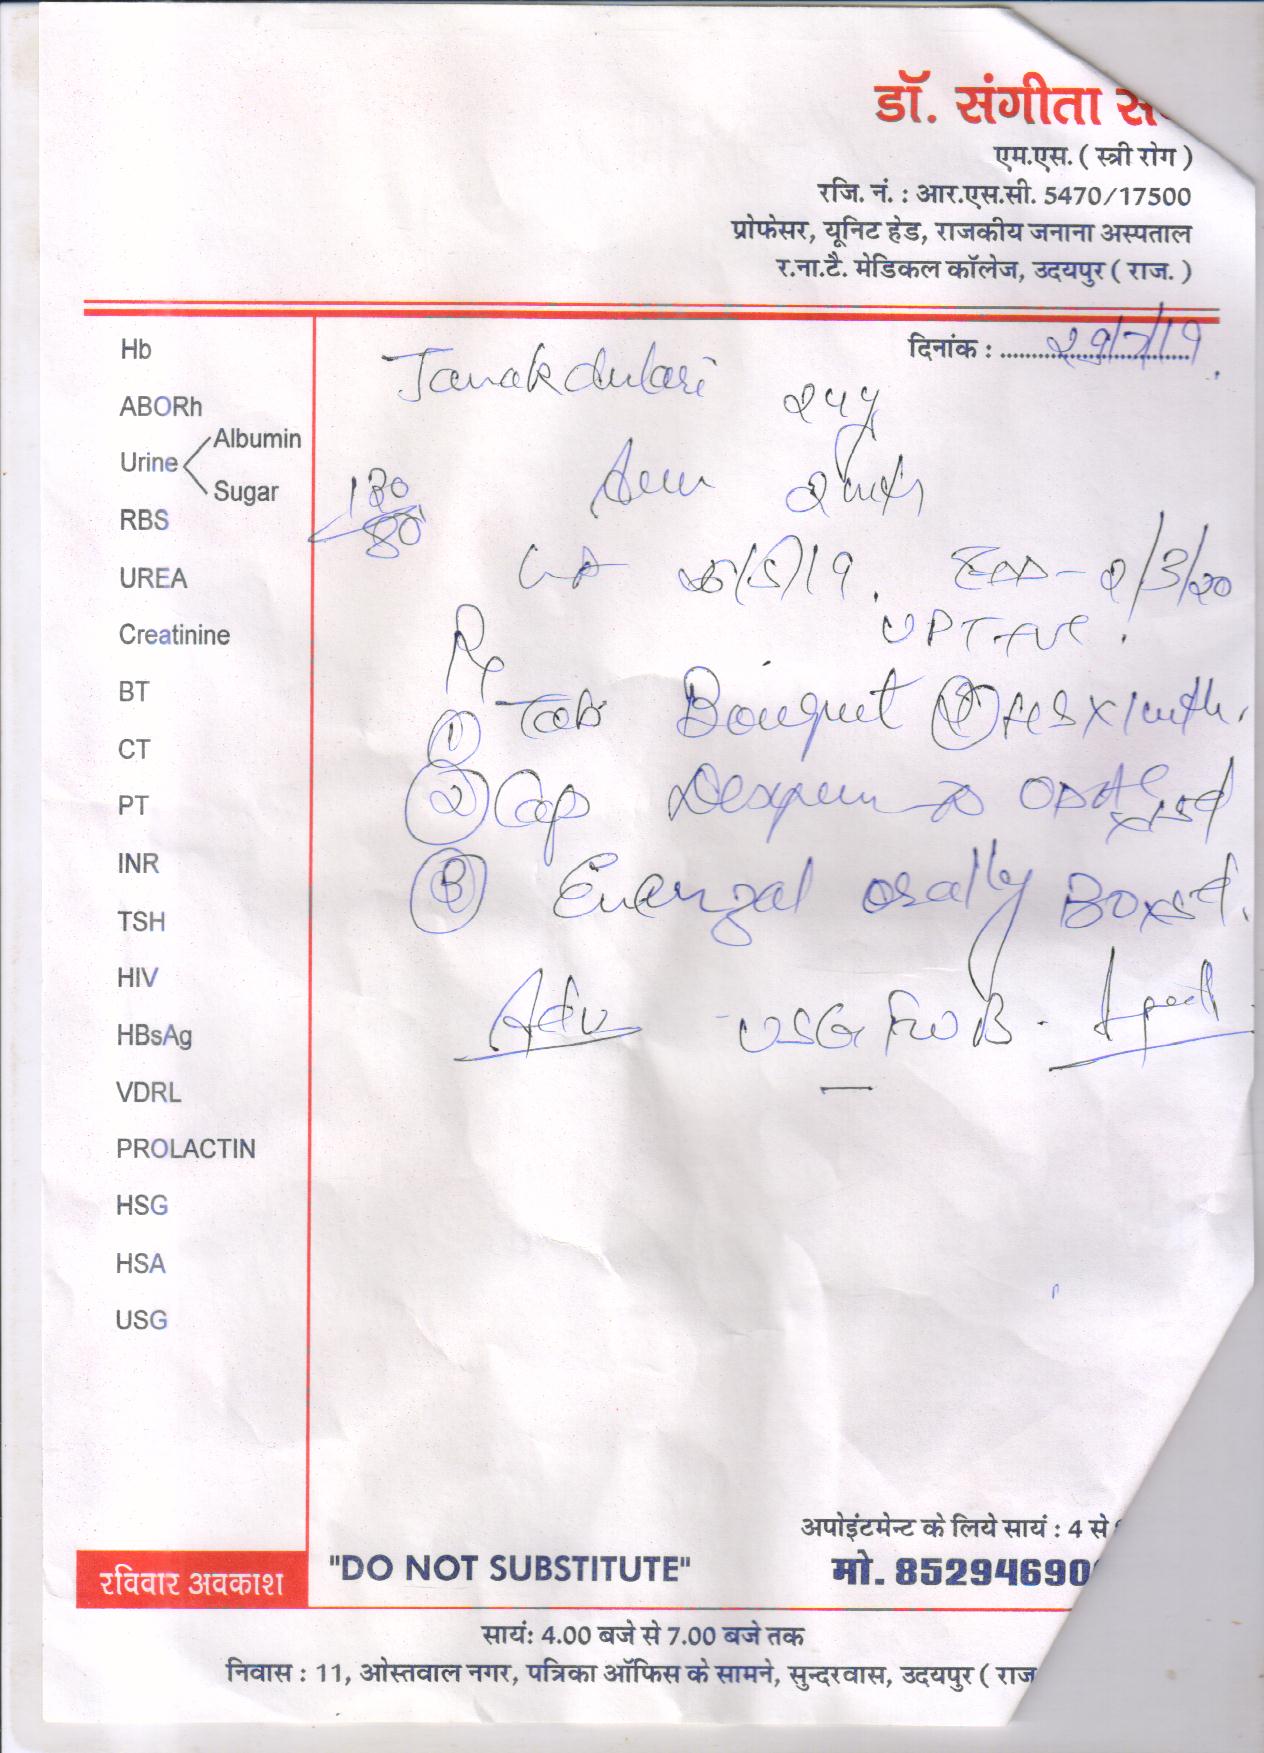 डॉ. संगीता
एम.एस. ( स्त्री रोग )
रजि. नं. : आर.एस.सी. 5470/17500
प्रोफेसर, यूनिट हेड, राजकीय जनाना अस्पताल
र.ना.टै. मेडिकल कॉलेज, उदयपुर ( राज. )
दिनांक : 29/7/19
Hb
ABORh
Urine
Albumin
Sugar
RBS
UREA
Creatinine
BT
CT
PT
INR
TSH
HIV
HBsAg
VDRL
PROLACTIN
HSG
HSA
USG
Janakdulari
25y
2 mth
/5/19. EDD - 2/3/20
UPT +ve.
Rx
① Tab Bouquet HS x 1 mth.
② Cap OD
③ orally x 5d.
Adv USG FWB.
अपोइंटमेन्ट के लिये सायं : 4 से
"DO NOT SUBSTITUTE"
मो. 85294690
रविवार अवकाश
सायं: 4.00 बजे से 7.00 बजे तक
निवास : 11, ओस्तवाल नगर, पत्रिका ऑफिस के सामने, सुन्दरवास, उदयपुर ( राज